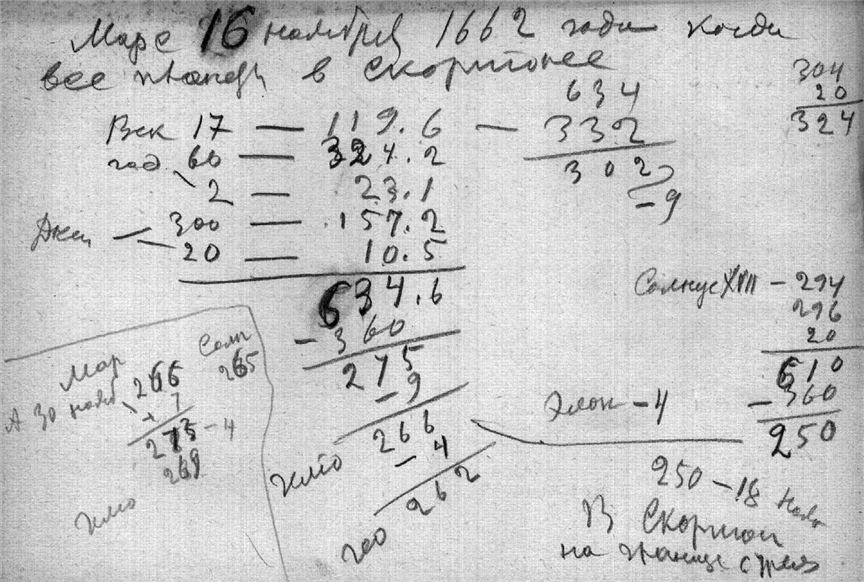 Марс 16 ноября 1662 года когда
все планеты в Скорпионе
304
20
324
634
332
302
-9
Век 17 — 119.6 —
год 60 — 324.2
2 — 23.1
Дни — 300 — 157.2
20 — 10.5
634.6
- 360
275
- 9
266
- 4
262
гео
Солнце XVII - 294
296
20
610
- 360
250
Элон - 4
250 - 18 Нояб
В Скорпион
на границе стрел
Мар
Солн
265
А 30 нояб 266
+ 7
273 - 4
269